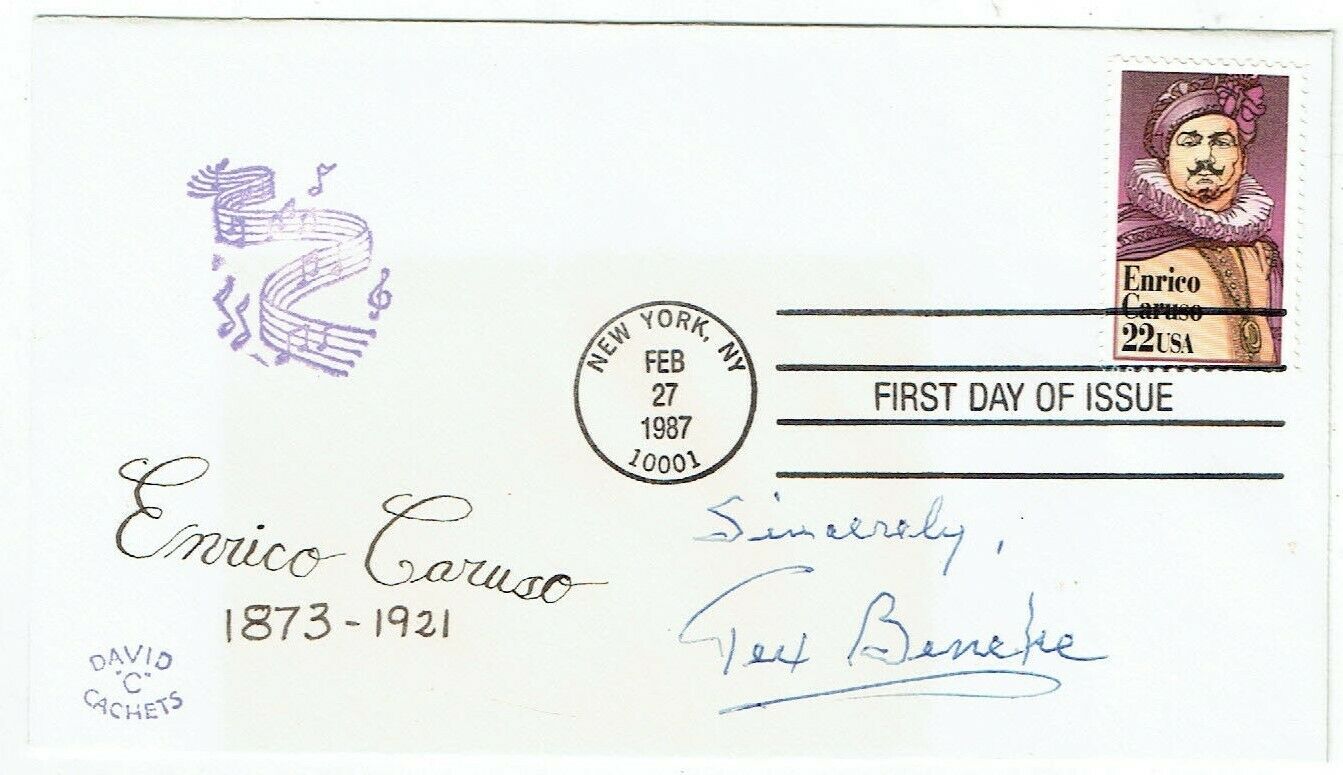 Enrico
Caruso
22USA
NEW YORK, NY
FEB
27
1987
10001
FIRST DAY OF ISSUE
Enrico Caruso
1873-1921
Sincerely,
Tex Beneke
DAVID
"C"
CACHETS